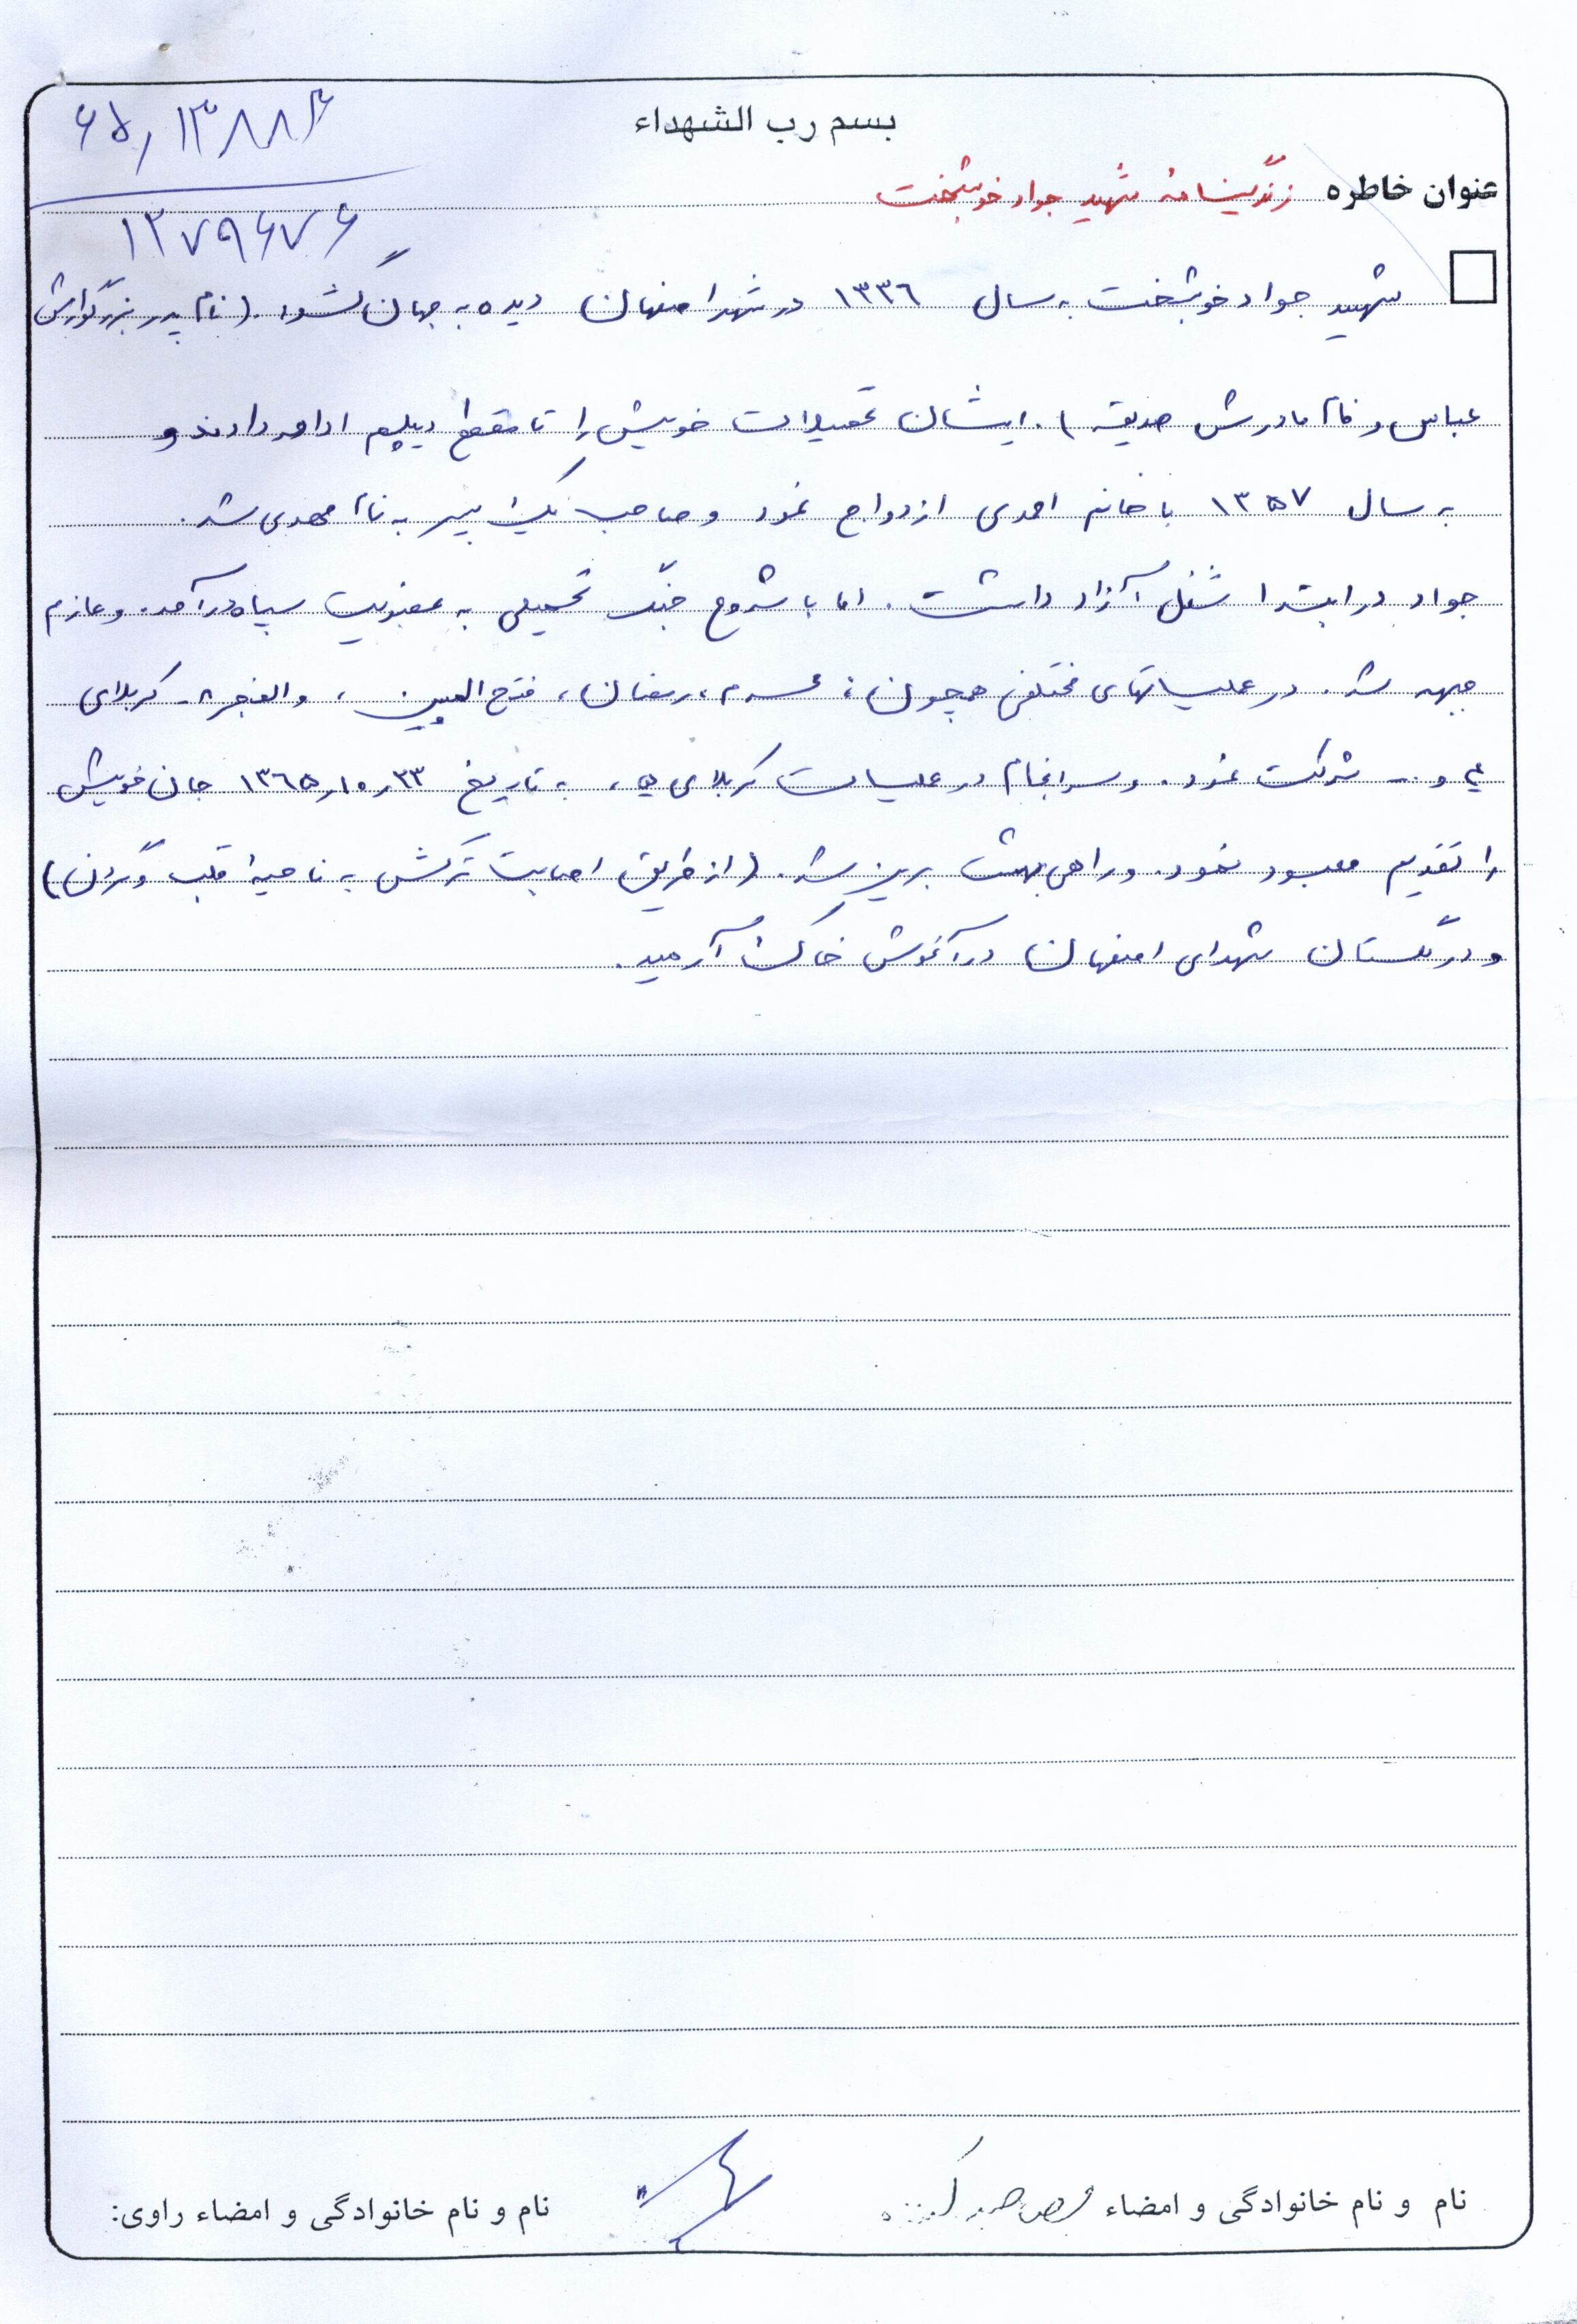 بسم رب الشهداء
۶۵,۱۳۸۸۴
۱۲۷۹۶۷۶
عنوان خاطره زندگینامهٔ شهید جواد خوشبخت
شهید جواد خوشبخت به سال ۱۳۳۶ در شهر اصفهان دیده به جهان گشود. (نام پدر بزرگوارش
عباس و نام مادرش صدیقه). ایشان تحصیلات خویش را تا مقطع دیپلم ادامه دادند و
به سال ۱۳۵۷ با خانم احمدی ازدواج نمود و صاحب یک پسر به نام مهدی شد.
جواد در ابتدا شغل آزاد داشت. اما با شروع جنگ تحمیلی به عضویت سپاه درآمد. و عازم
جبهه شد. در عملیاتهای مختلفی همچون: محرم، رمضان، فتح المبین، والفجر ۸ - کربلای
۴ و ... شرکت نمود. و سرانجام در عملیات کربلای ۵، به تاریخ ۲۳ر۱۰ر۱۳۶۵ جان خویش
را تقدیم معبود نمود. و راهی بهشت برین شد. (از طریق اصابت ترکش به ناحیهٔ قلب و گردن)
و در گلستان شهدای اصفهان در آغوش خاک آرمید.
نام و نام خانوادگی و امضاء
نام و نام خانوادگی و امضاء راوی: